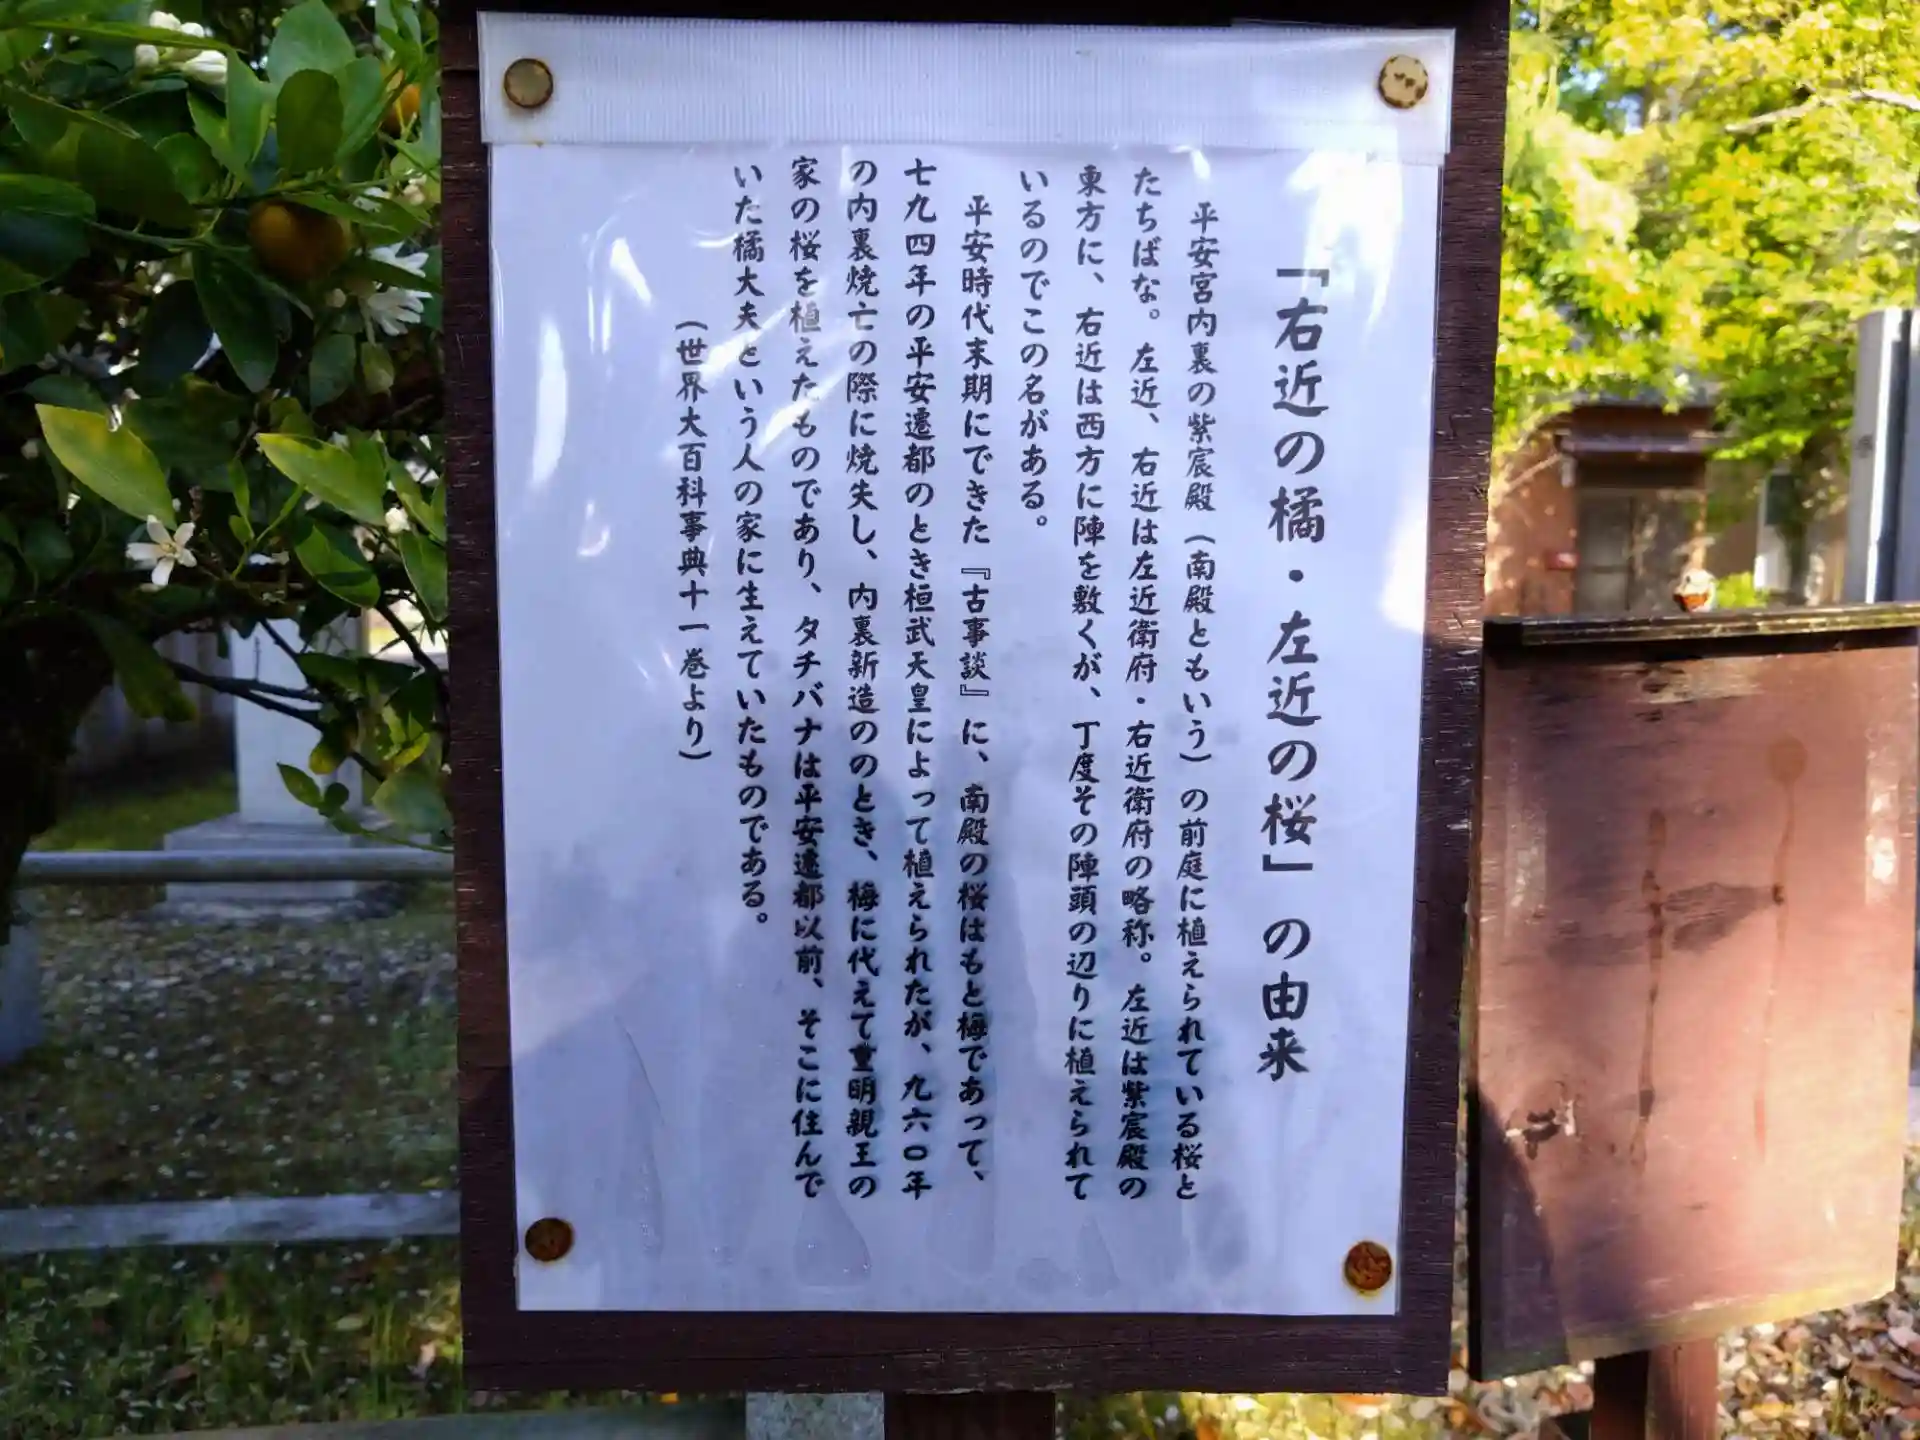 「右近の橘・左近の桜」の由来
平安宮内裏の紫宸殿(南殿ともいう)の前庭に植えられている桜と
たちばな。左近、右近は左近衛府・右近衛府の略称。左近は紫宸殿の
東方に、右近は西方に陣を敷くが、丁度その陣頭の辺りに植えられて
いるのでこの名がある。
平安時代末期にできた『古事談』に、南殿の桜はもと梅であって、
七九四年の平安遷都のとき桓武天皇によって植えられたが、九六〇年
の内裏焼亡の際に焼失し、内裏新造ののとき、梅に代えて重明親王の
家の桜を植えたものであり、タチバナは平安遷都以前、そこに住んで
いた橘大夫という人の家に生えていたものである。
(世界大百科事典十一巻より)